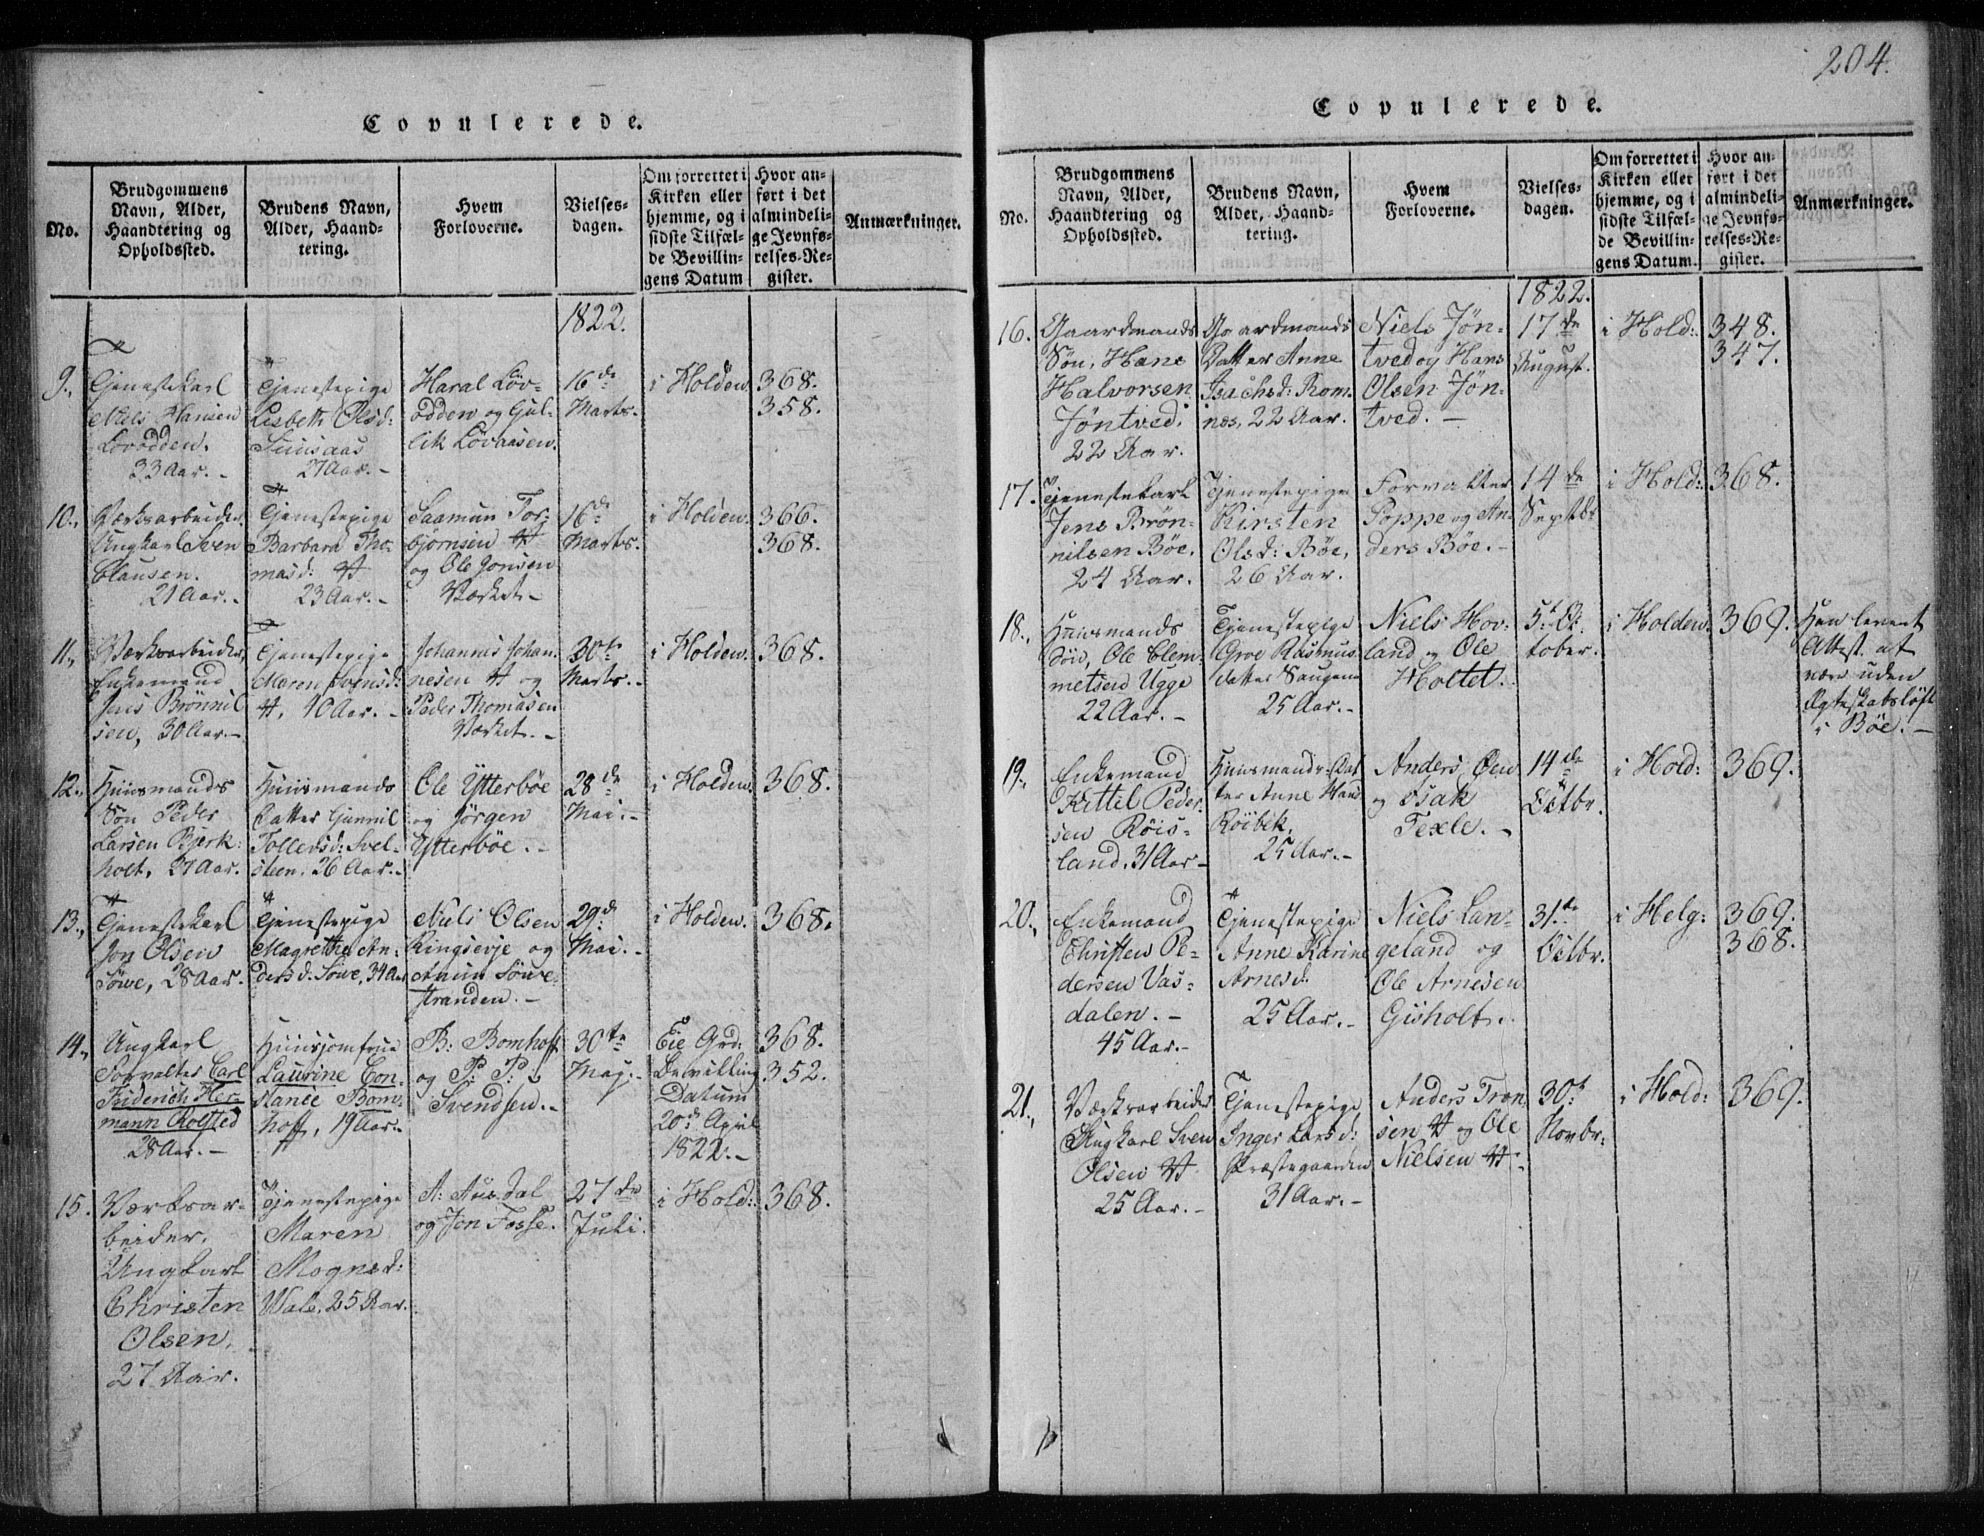 204.
Copulerede.
No.
Brudgommens
Navn, Alder,
Haandtering og
Opholdssted.
Brudens Navn,
Alder, Haand-
tering.
Hvem
Forloverne.
Vielses-
dagen.
Om forrettet i
Kirken eller
hjemme, og i
sidste Tilfæl-
de Bevillin-
gens Datum
Hvor an-
ført i det
almindeli-
ge Jevnfø-
relses-Re-
gister.
Anmærkninger.
1822.
9.,
Tjenestekarl
Niels Hansen
Lovodden.
33 Aar. -
Tjenestepige
Lisbeth Olsd:
27 Aar. -
Haral Löv-
odden og Gul-
lik Lövaasen.
16de
Marts.
i Holden.
368.
358.
10.,
Værksarbeider,
Ungkarl Sven
Clausen.
21 Aar. -
Tjenestepige
Barbara Tho-
masd:
23 Aar. -
Saamun Tor-
bjornsen
og Ole Jonsen
Værket -
16de
Marts.
i Holden.
366.
368.
11.,
Værksarbeider,
Enkemand
Jens Brönnil
sen, 30 Aar. -
Tjenestepige
Maren Svensd:
40 Aar. -
Johannes Johan-
nesen og
Peder Thomasen
Værket. -
30te
Marts. -
i Holden.
368.
12.,
Huusmands
Sön Peder
Larsen Bjerk-
holt, 27 Aar.
Huusmands
Datter Gunnil
Tollevsd: Svel-
steen. 26 Aar. -
Ole Ytterböe
og Jörgen
Ytterböe. -
28de
Mai. -
i Holden.
368.
13.,
Tjenestekarl
Jon Olsen
Söwe, 28 Aar.
Tjenestepige
Magrethe An-
dersd: Söwe, 34 Aar
Niels Olsen
Ringsevje og
Amun Söwe-
stranden. -
29de
Mai. -
i Holden.
368.
14.,
Ungkarl
Forvalter Carl
Friderich Her-
mann Rolsted
28 Aar. -
Huusjomfrue
Laurine Con-
stance Bom-
hoff, 19 Aar. -
B: Bomhoff
og P: P:
Svendsen. -
30te
Maj. -
Eie Grd:
Bevilling
Datum
20de April
1822. -
368.
352.
15.
Værksar-
beider,
Ungkarl
Christen
Olsen,
27 Aar.
Tjenestepige
Maren
Mognsd:
Wale, 25 Aar.
A: Aasdal
og Jon Fosse.
27de
Juli.
i Hold:
368.
Copulerede.
No.
Brudgommens
Navn, Alder,
Haandtering og
Opholdssted.
Brudens Navn,
Alder, Haand-
tering.
Hvem
Forloverne.
Vielses-
dagen.
Om forrettet i
Kirken eller
hjemme, og i
sidste Tilfæl-
de Bevillin-
gens Datum.
Hvor an-
ført i det
almindeli-
ge Jevnfø-
relses-Re-
gister.
Anmærkninger.
1822.
16.
Gaardmands
Sön, Hans
Halvorsen
Jöntved,
22 Aar.
Gaardmands
Datter Anne
Isachsd: Rom-
næs, 22 Aar.
Niels Jön-
tved og Hans
Olsen Jön-
tved. -
17de
August.
i Hold:
348.
347.
17.
Tjenestekarl
Jens Brön-
nilsen Böe,
24 Aar.
Tjenestepige
Kirsten
Olsd: Böe,
26 Aar.
Forvalter
Poppe og An-
ders Böe. -
14de
Septbr
i Hold:
368.
18.,
Huusmands
Sön, Ole Clem-
metsen Ugge
22 Aar. -
Tjenestepige
Groe Rasmus-
datter Saugene
25 Aar. -
Niels Hov-
land og Ole
Holtet.
5te Oc-
tober.
i Holden.
369.
Han leveret
Attest at
være uden
Ægteskabslöfte
i Böe. -
19.,
Enkemand
Kittel Peder-
sen Röis-
land. 31 Aar -
Huusmands-Dat
ter Anne Hans
Röibek.
25 Aar. -
Anders Öen
og Isak
Texle. -
14de
Octbr.
i Hold:
369.
20.,
Enkemand
Christen Pe-
dersen Vas-
dalen. -
45 Aar. -
Tjenestepige
Anne Karine
Arnesd:
25 Aar. -
Niels Lan-
geland og
Ole Arnesen
Gisholt.
31te
Octbr.
i Helg:
369.
368.
21.,
Værksarbeider
Ungkarl Sven
Olsen
25 Aar. -
Tjenestepige
Inger Larsd:
Præstegaarden
31 Aar. -
Anders Tron-
sen og Ole
Nielsen
30te
Novbr.
i Hold:
369.